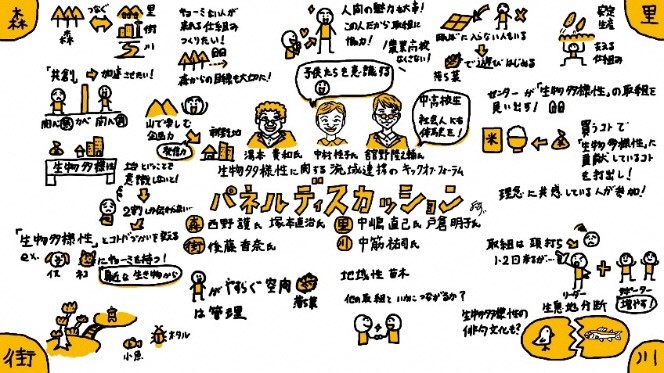 森
つなぐ
森
里
街
川
キョーミない人が
来れる仕組み
つくりたい!
森からの目線も大切に!
人間の魅力も大事!
この人だから取組に
協力!
農業高校
なくさない!
田んぼに入らない人もいる
落ち葉
で遊びはじめる
安定
生産
支える
仕組み
里
「共創」
加速させたい!
関心
カベ
関心
生物多様性
山で楽しむ
企画力
発信力
子供たちを意識する
中高校生
社会人にも
体験を!
湯本貴和氏
中村桂子氏
吉野隆之輔氏
生物多様性に関する流域連携のキックオフフォーラム
パネルディスカッション
森
西野護氏
塚本直治氏
里
中嶋直己氏
戸倉明子氏
街
佐藤香奈氏
川
中筋祐司氏
センターが「生物多様性」の取組を
見い出す!
米
買うコトで
生物多様性に
貢献しているコト
を打出し!
理念に共感している人が参加!
地といっことで
意識しないと!
2割しか伝わらない
「生物多様性」とコトバづかいを変える
ex.
イヌ
ネコ
にキョーミを持つ!
身近な生き物から
がやすらぐ空間
は管理
落葉
地域性苗木
他の取組といかにつながるか?
取組は頭打ち
1・2回来るが…
リーダー
サポーター
増やす!
生息地分断
生物多様性の
俳句文化も?
小魚
ホタル
街
川